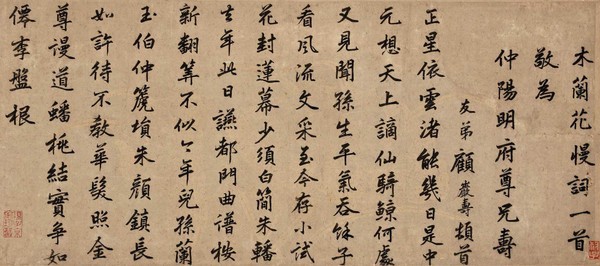 木蘭花慢詞一首
敬為
仲陽明府尊兄壽
友弟顧巖壽頓首
正星依雲渚能幾日是中
元想天上謫仙騎鯨何處
又見聞孫生平氣吞餘子
看風流文采至今存小試
花封蓮幕少須白簡朱轓
去年此日讌都門曲譜按
新翻筭不似今年兒孫蘭
玉伯仲篪塤朱顏鎮長
如許待不教華髮照金
尊漫道蟠桃結實爭如
僊李盤根